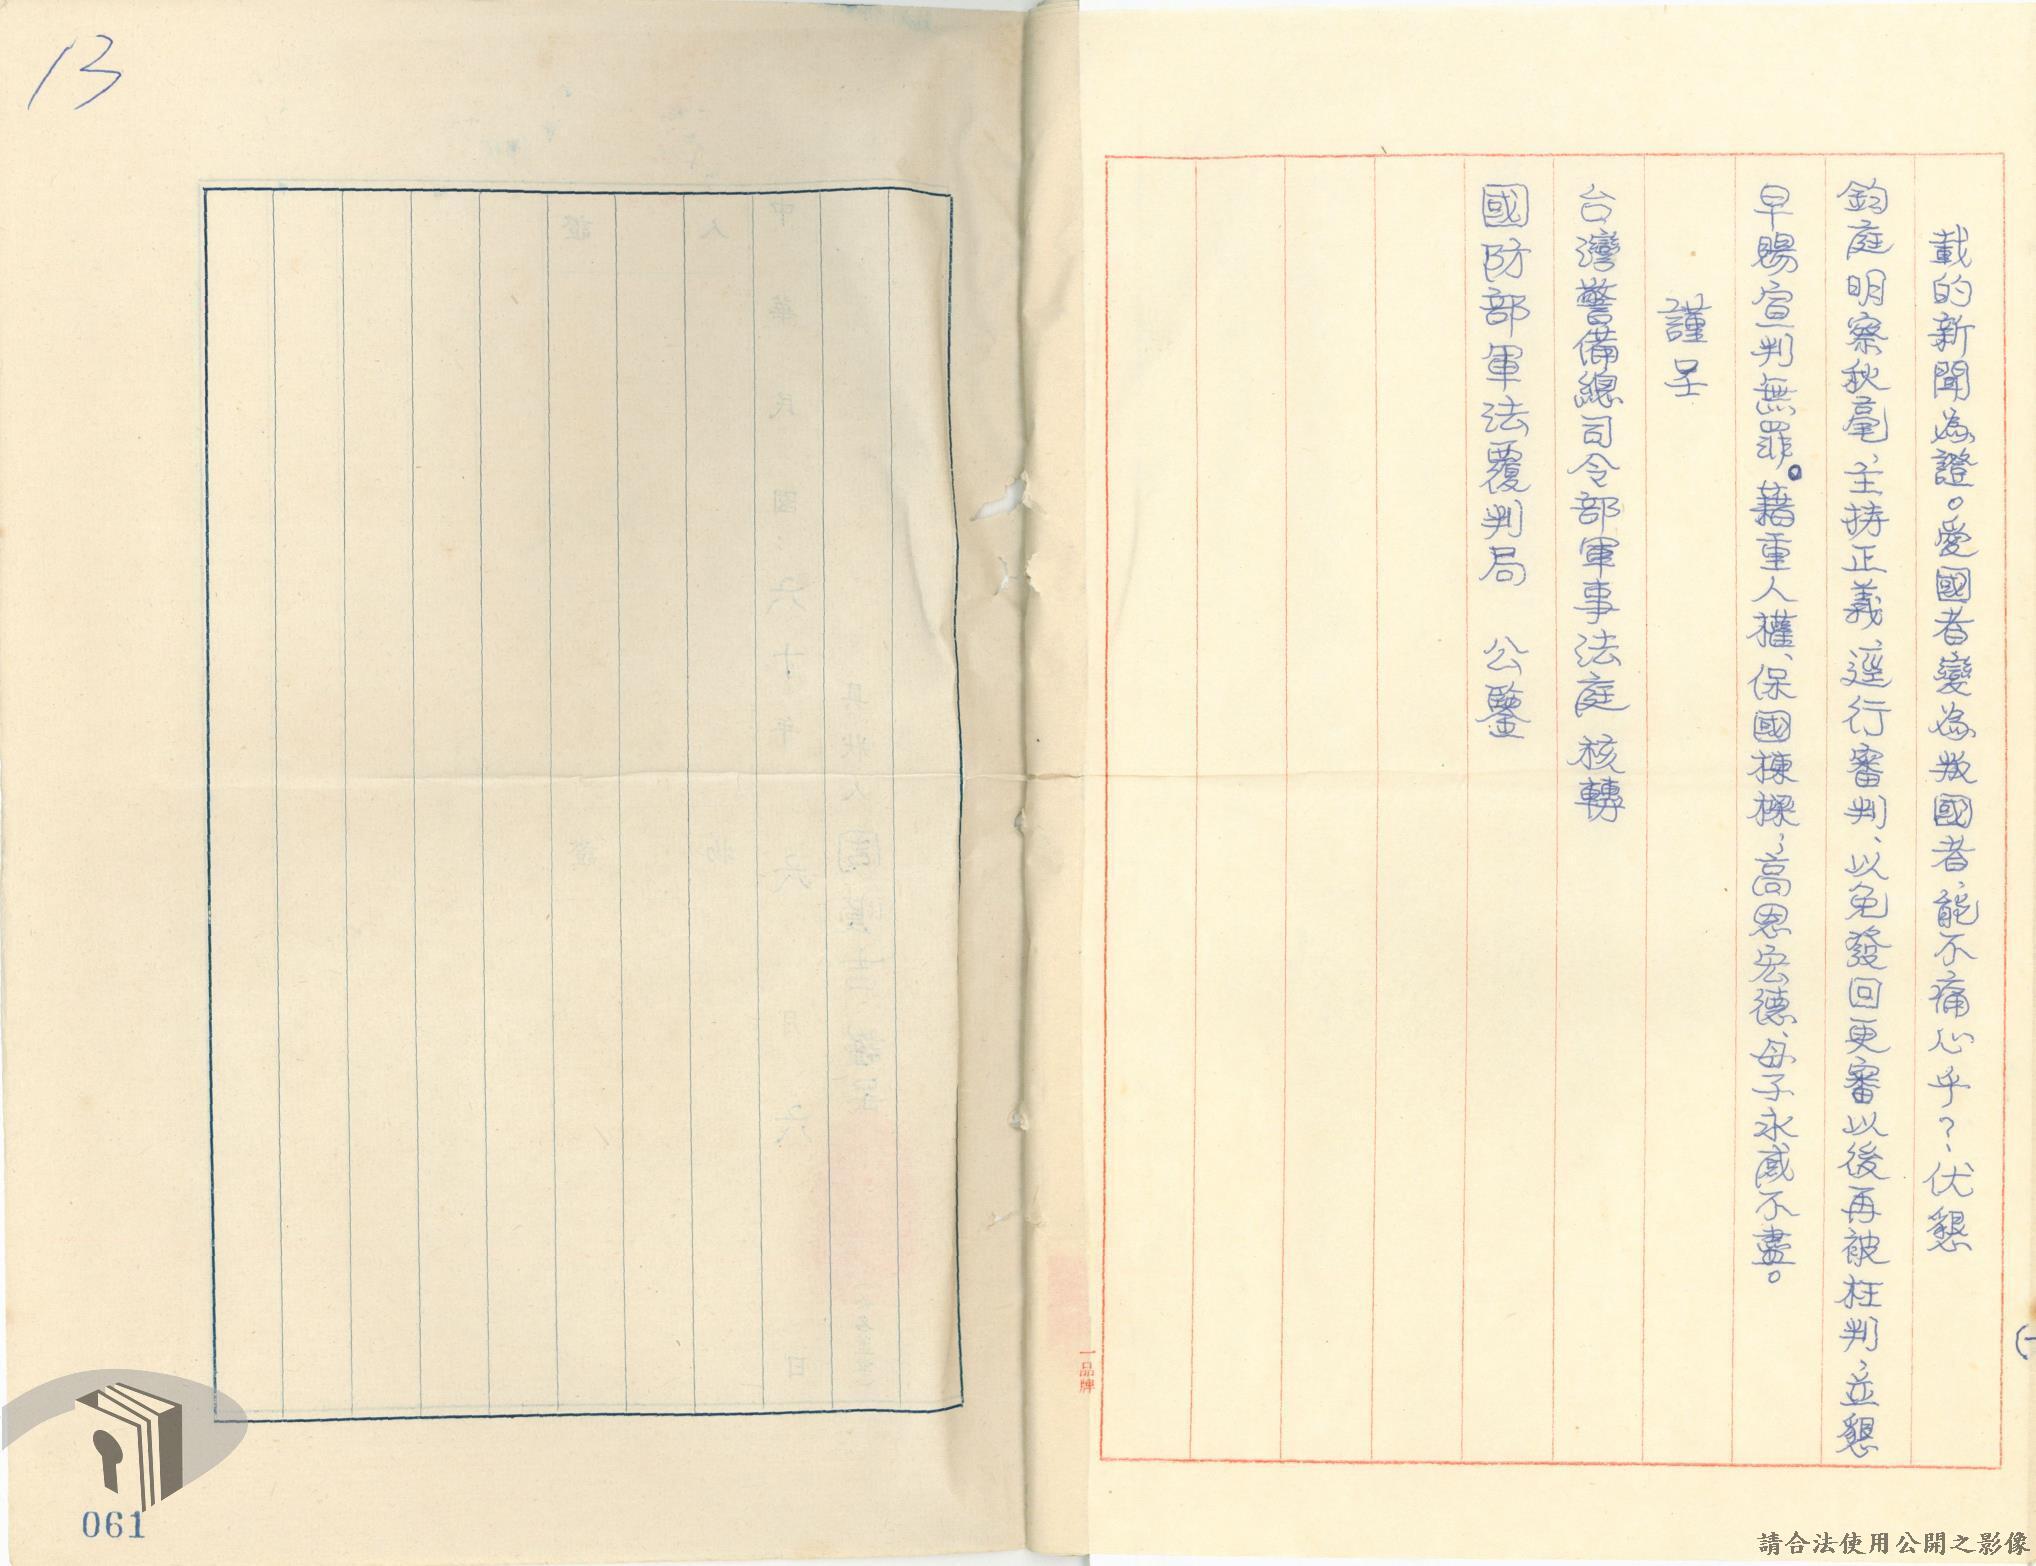 載的新聞為證。愛國者變為叛國者、能不痛心乎？、伏懇
鈞庭明察秋毫、主持正義、逕行審判、以免發回更審以後再被枉判、並懇
早賜宣判無罪。藉重人權、保國棟樑、高恩宏德、母子永感不盡。
謹呈
台灣警備總司令部軍事法庭 核轉
國防部軍法覆判局 公鑒
一品牌
13
061
請合法使用公開之影像